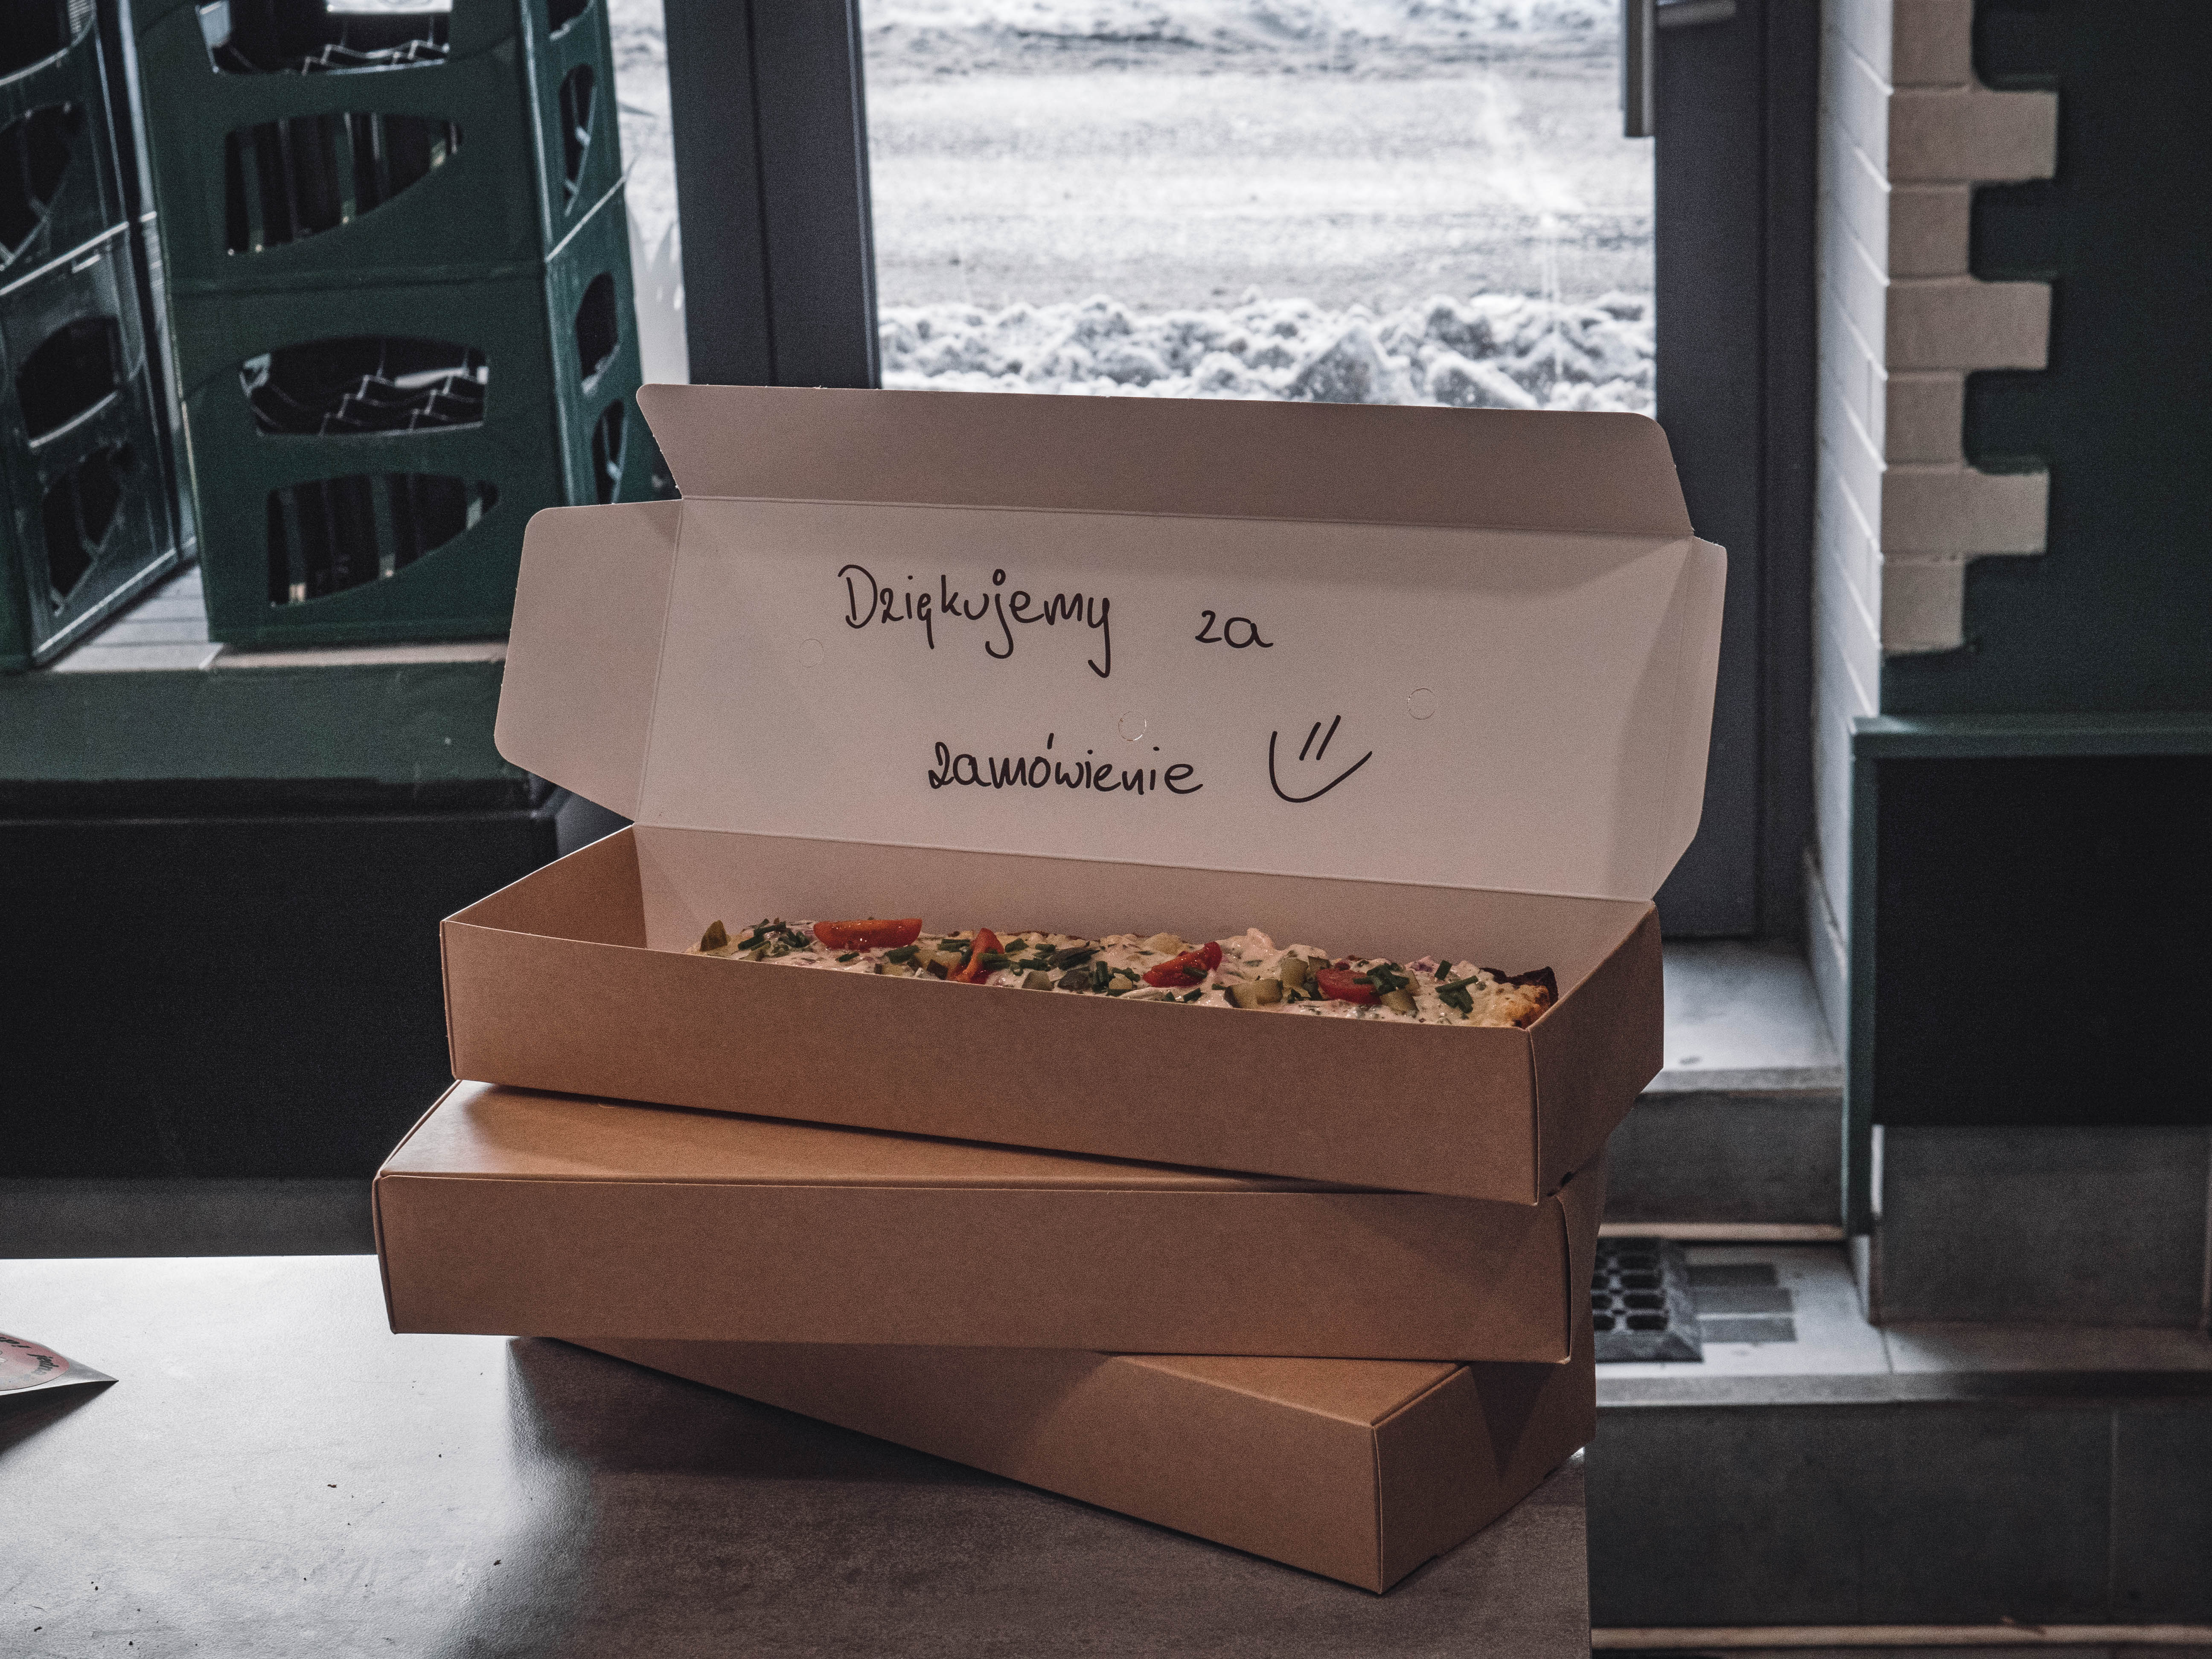 Dziękujemy za
zamówienie